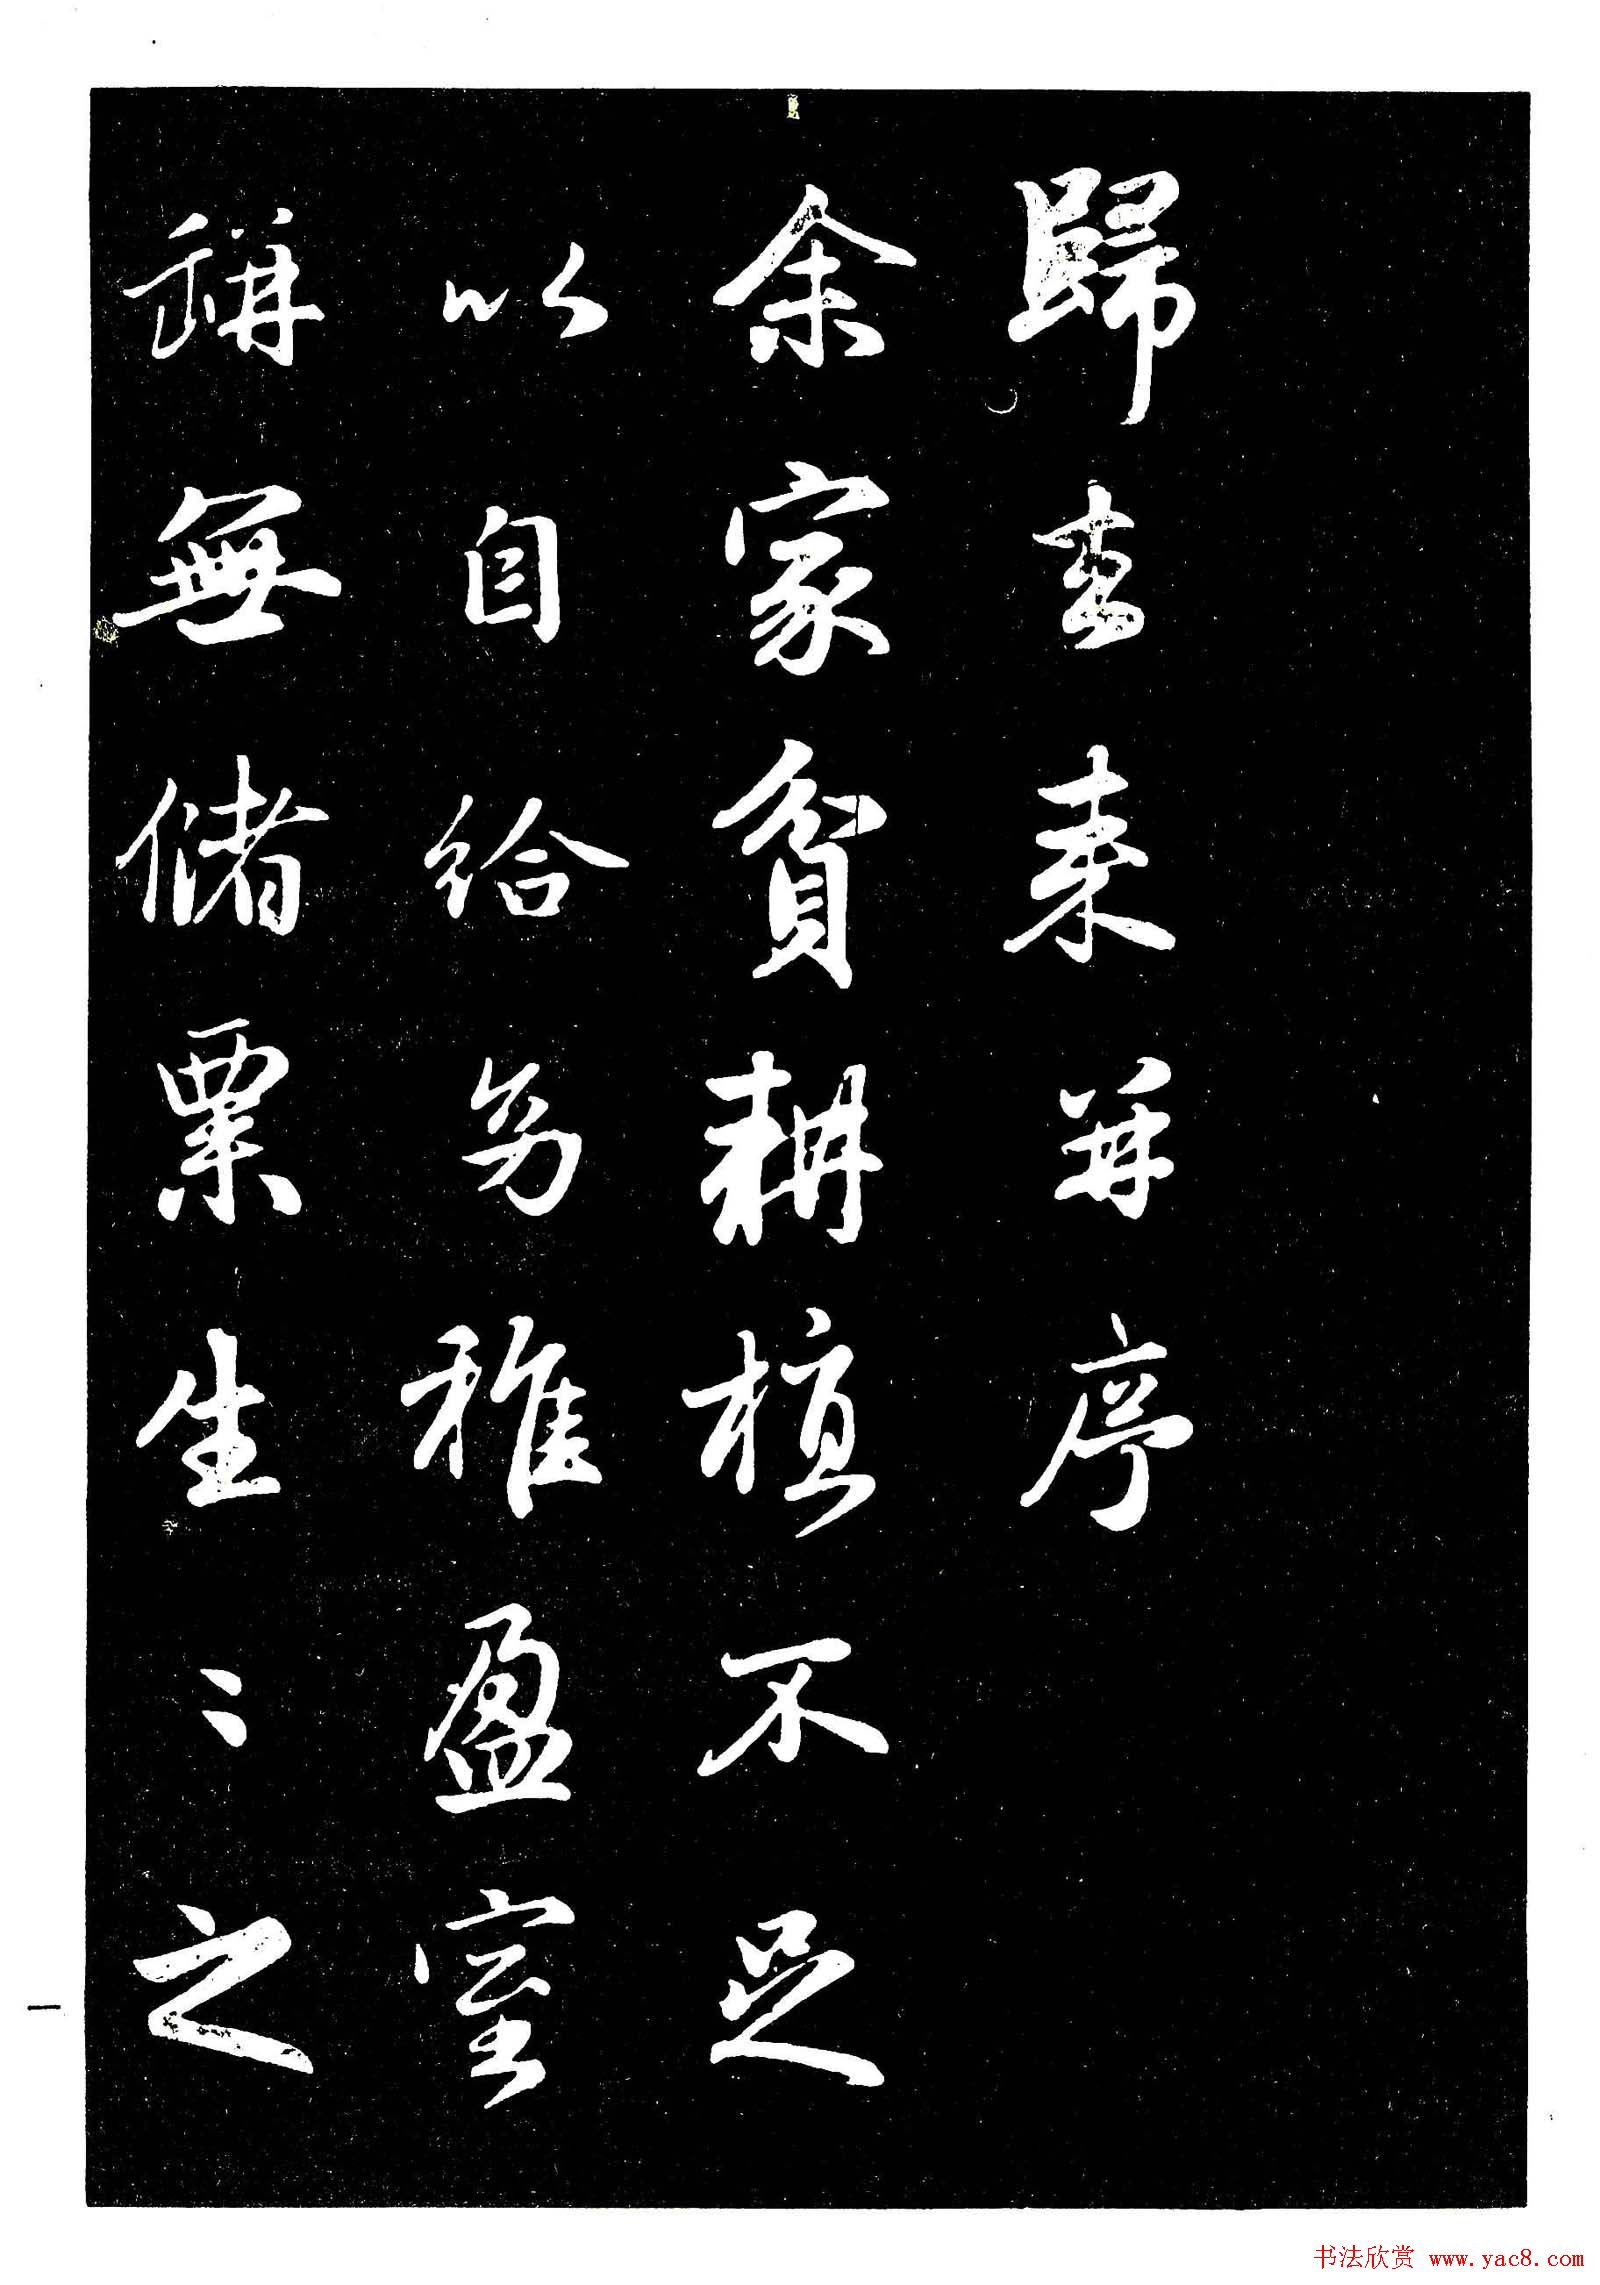 歸去来并序
余家貧耕植不足
以自給幼稚盈室
缾無儲粟生〻之
一
书法欣赏 www.yac8.com